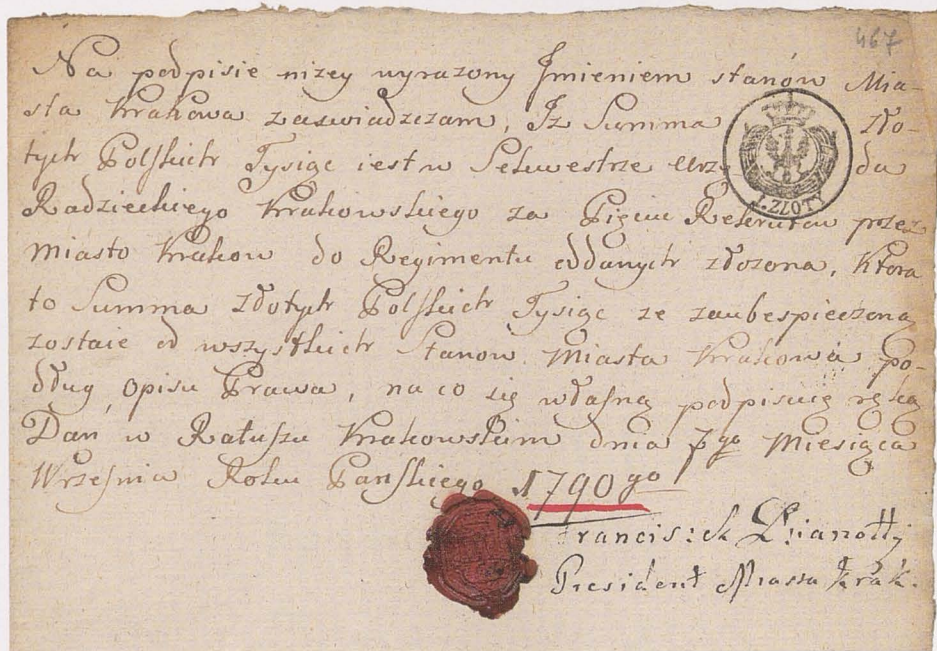 467
Na podpisie niżey wyrażony Jmieniem stanów Mia-
sta Krakowa zaswiadczam, Jz Summa zło-
tych Polskich Tysiąc iest w Sekwestrze Urzędu
1. ZŁOTY
Radzieckiego Krakowskiego za Pięciu Rekrutow przez
Miasto Krakow do Regimentu oddanych złozona, Ktora
to Summa złotych Polskich Tysiąc ze zaubespieczoną
zostaie od wszystkich Stanow Miasta Krakowa po-
dług opisu Prawa, na co się własną podpisuię ręką
Dan w Ratuszu Krakowskim dnia 7go Miesiąca
Września Roku Pańskiego 1790go
Francis:ek
President Miasta Krak.